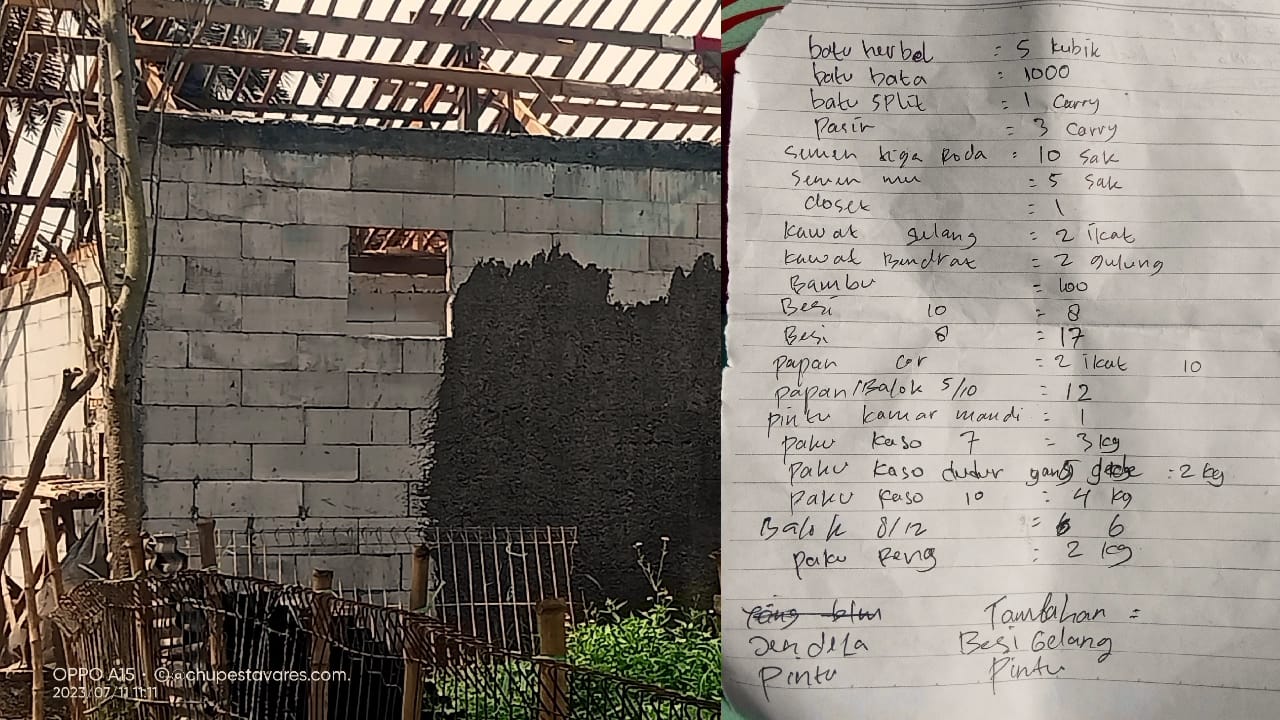 OPPO A15 · © chupestavares.com.
2023/07/11 11:11
batu herbel = 5 kubik
batu bata : 1000
batu split = 1 Carry
Pasir = 3 Carry
Semen tiga Roda = 10 Sak
Semen mu = 5 Sak
closet = 1
kawat gelang = 2 ikat
kawat Bendrat = 2 gulung
Bambu = 100
Besi 10 = 8
Besi 8 = 17
papan cor = 2 ikat 10
papan/Balok 5/10 = 12
pintu kamar mandi = 1
paku kaso 7 = 3 kg
paku kaso dudur yang gede : 2 kg
paku kaso 10 = 4 kg
Balok 8/12 = 6
paku Reng : 2 kg
Tambahan =
Jendela Besi Gelang
Pintu Pintu